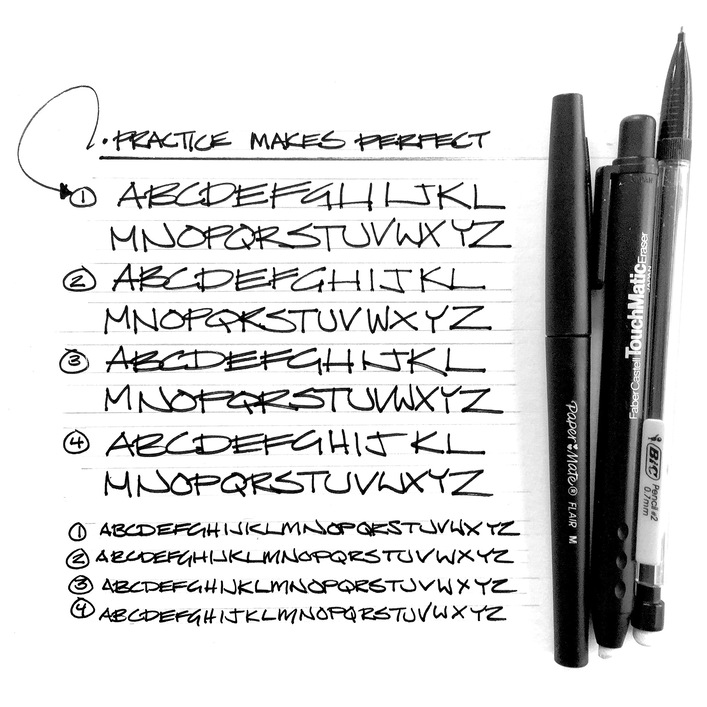 · PRACTICE MAKES PERFECT
① ABCDEFGHIJKL
MNOPQRSTUVWXYZ
② ABCDEFGHIJKL
MNOPQRSTUVWXYZ
③ ABCDEFGHIJKL
MNOPQRSTUVWXYZ
④ ABCDEFGHIJKL
MNOPQRSTUVWXYZ
① ABCDEFGHIJKLMNOPQRSTUVWXYZ
② ABCDEFGHIJKLMNOPQRSTUVWXYZ
③ ABCDEFGHIJKLMNOPQRSTUVWXYZ
④ ABCDEFGHIJKLMNOPQRSTUVWXYZ
Paper Mate® FLAIR M
FaberCastell TouchMatic Eraser
JAPAN
BIC
Pencil #2
0.7mm